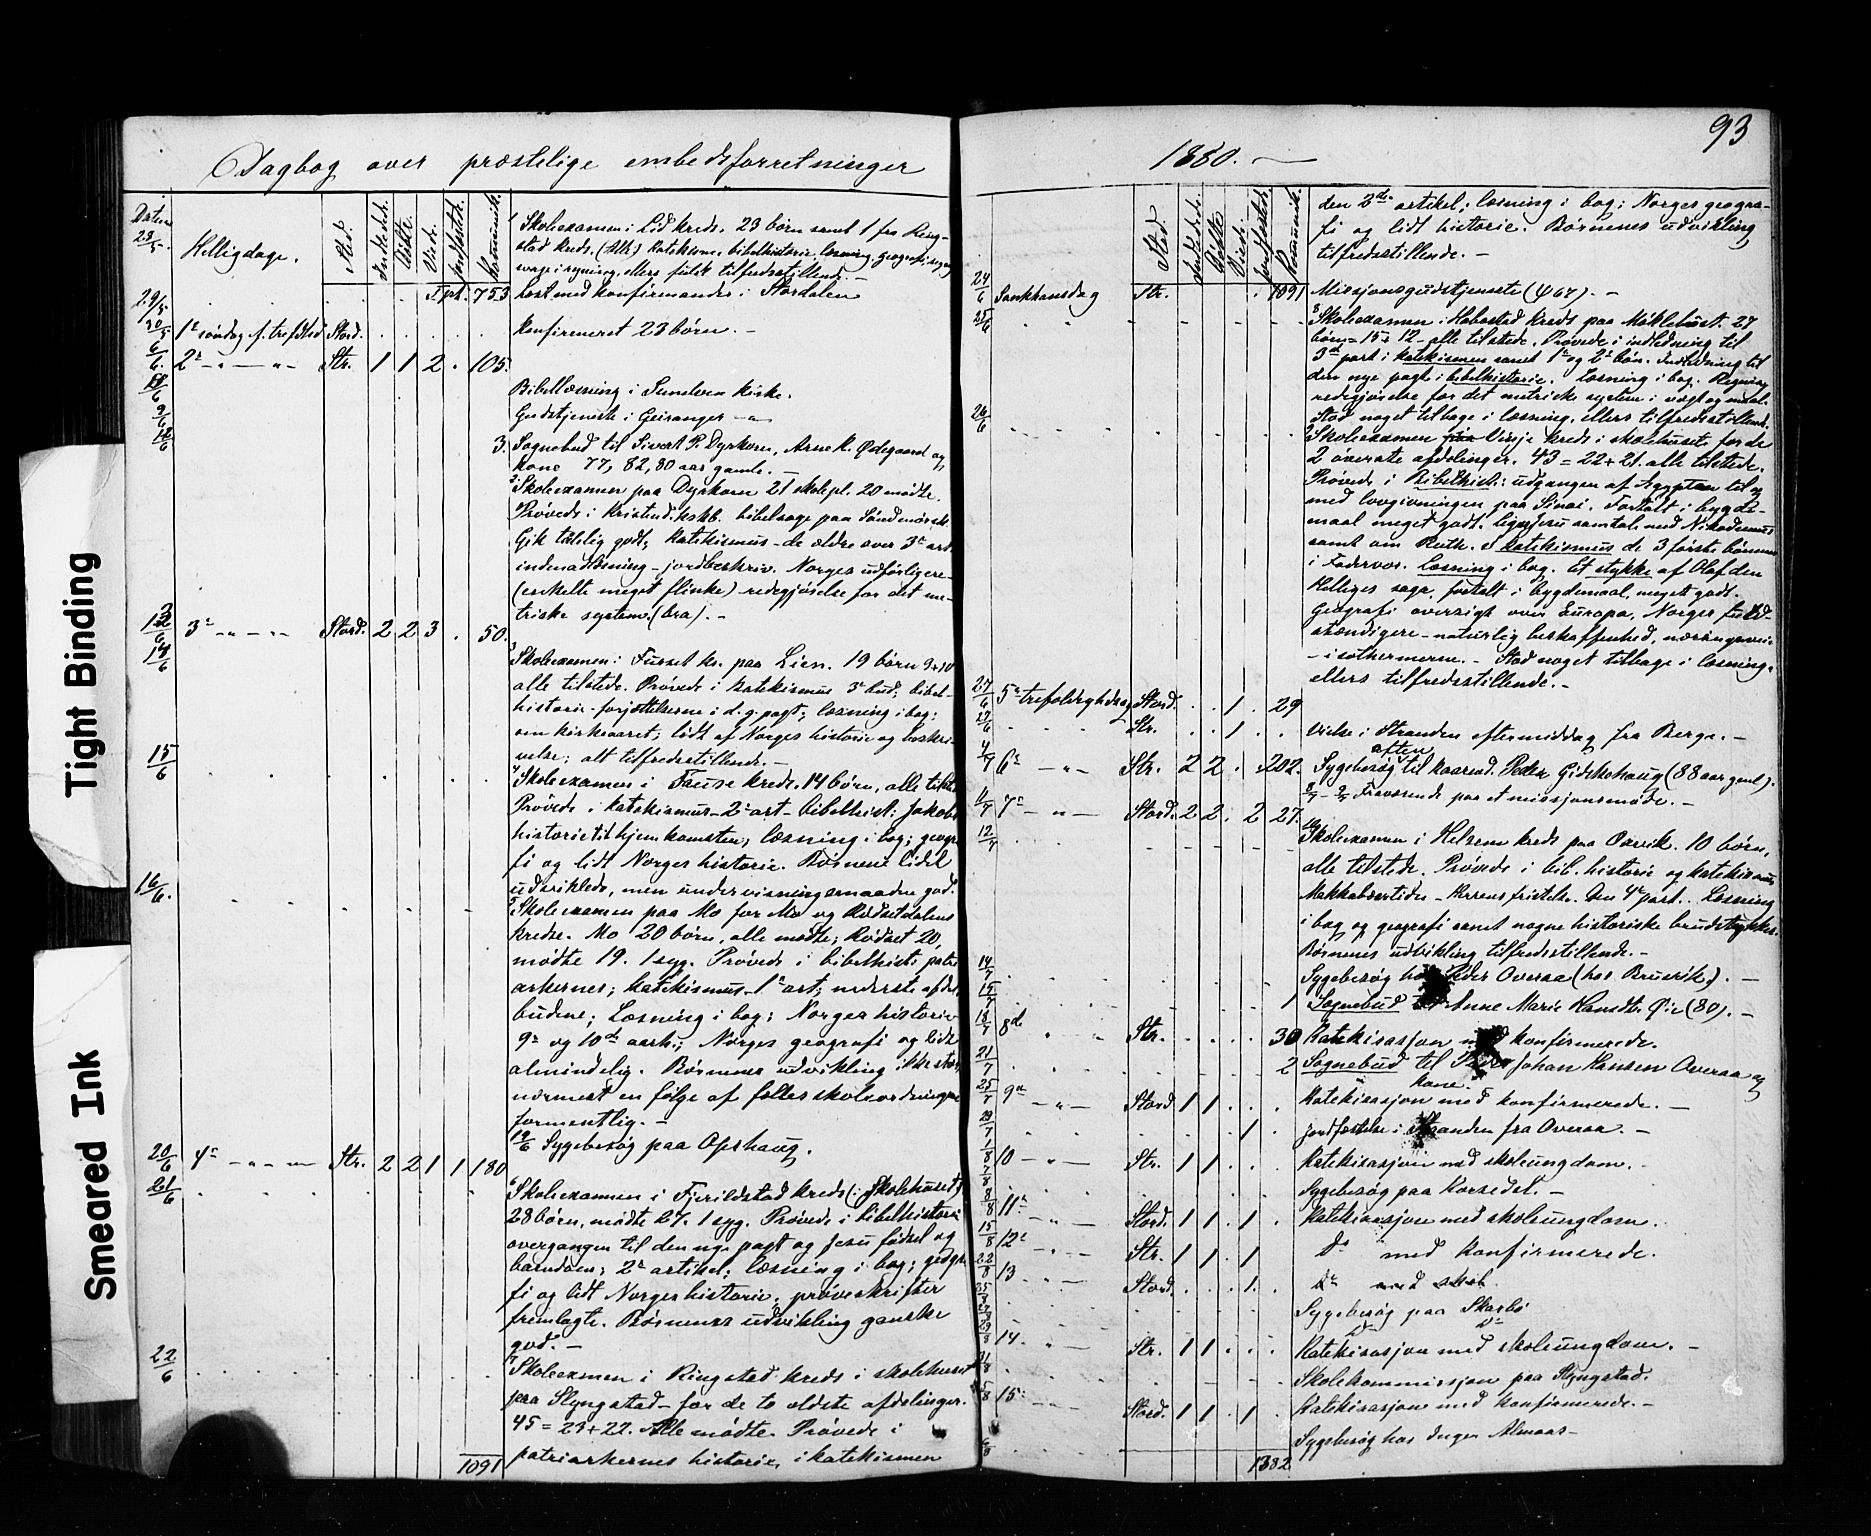 93
Dagbog over præstelige embedsforretninger
1880. —
Tight Binding
Smeared Ink
Datum Helligdage. Sted. Indledet. Vidste Viede. Jordfæstede. Kommunik.
28/5. 1 Skoleexamen i Lid kreds. 23 børn samt 1 fra Ring-
stad kreds. bibelhistorie, læsning, geografi
svage i regning, ellers fuldt tilfredsstillende. —
29/5 Fprt. 753 læst med konfirmander i Stordalen
30/5 1e søndag f. trefdhed Stord. konfirmeret 23 børn. —
6/6. 2e — „ — „ — Str. 1 1 2 . 105.
Bibellæsning i Sunelven kirke.
9/6 Gudstjeneste i Geiranger —„—
12/6 3. Sognebud til Sivert P. Dyrkorn, Arne K. Ødegaard og
kone 77, 82, 80 aar gamle. —
2 Skoleexamen paa Dyrkorn 21 skolepl. 20 mødte.
Prøvede i Kristend.kskb. bibelsage paa Søndmørsk
Gik tålelig godt; katekismus — de ældre over 3e art.
indenadlæsning — jordbeskriv. Norges udførligere —
(enkelte meget flinke) redegjørelse for det me-
triske system (bra). —
13/6 3e — „ — „ — Stord. 2 2 3 . 50.
14/6 3 Skoleexamen i Fusset kr. paa Lien. 19 børn 9+10
alle tilstede. Prøvede i katekismus 3e bud; bibel-
historie — forjættelserne i d. g. pagt; læsning i bog:
om kirkeaaret; lidt af Norges historie og beskri-
velse; alt tilfredsstillende. —
15/6 4 Skoleexamen i Fause kreds. 14 børn, alle tilst.
Prøvede i katekismus — 2e art — bibelhist: Jakobs
historie til hjemkomsten; læsning i bog; geogra
fi og lidt Norges historie. Børnene lidet
udviklede, men undervisningsmaaden god.
16/6. 5 Skoleexamen paa Mo for Mo og Rødsetdalens
kredse. Mo 20 børn, alle mødte; Rødset 20,
mødte 19. 1 syg. Prøvede i bibelhist: patri
arkernes; katekismus — 1e art; nederste afdel.
budene; Læsning i bog; Norges historie
9e og 10de aarh.; Norges geografi og lidt
almindelig. Børnenes udvikling ikke stor,
nærmest en følge af fællesskoleordningen
formentlig. —
19/6 Sygebesøg paa Opshaug.
20/6 4e — „ — „ — Str. 2 2 1 1 180
21/6 6 Skoleexamen i Fjerildstad kreds (i skolehuset)
28 børn, mødte 27. 1 syg. Prøvede i bibelhistorie
overgangen til den nye pagt og Jesu fødsel og
barndom; 2e artikel; læsning i bog; geogra
fi og lidt Norges historie, prøveskrifter
fremlagte. Børnenes udvikling ganske
god. —
22/6 7 Skoleexamen i Ringstad kreds i skolehuset
paa Slyngstad — for de to ældste afdelinger.
45 = 23 + 22. Alle mødte. Prøvede i
1091 patriarkernes historie, i katekismen
Sted. Indledet. Vidste Viede. Jordfæstede. Kommunik.
den 2de artikel; læsning i bog; Norges geogra-
fi og lidt historie. Børnenes udvikling
tilfredsstillende. —
24/6 Sankthansdag Str. 1091 Missionsgudstjeneste (ψ 67). —
25/6 8 Skoleexamen i Habostad kreds paa Mæklebust. 27
børn = 15 + 12 — alle tilstede. Prøvede i indledning til
3d part i katekismen samt 1e og 2e bøn. Indledning til
den nye pagt i bibelhistorie. Læsning i bog. Regning
redegjørelse for det metriske system i vægt og maal.
Stod noget tilbage i læsning, ellers tilfredsstillend.
26/6 9 Skoleexamen Vinje kreds i skolehuset for de
2 øverste afdelinger. 43 = 22 + 21. alle tilstede.
Prøvede i Bibelhist: udgangen af Ægypten til og
med lovgivningen paa Sinai. Fortalt i bygde-
maal meget godt. ligesaa Jesu samtale med Nikodemus
samt om Ruth. I katekismus de 3 første bønner
i Fadervor. Læsning i bog. Et stykke af Olaf den
Helliges saga, fortalt i bygdemaal, meget godt.
Geografi oversigt over Europa, Norges fuld-
stændigere — naturlig beskaffenhed, næringsveie
— isothermerne. — Stod noget tilbage i læsning.
ellers tilfredsstillende. —
27/6 5e trefoldighdsdag Stord. . . 1 . 29
27/6 Str. . . 1 . . Vielse i Stranden eftermiddag fra Berge. —
4/7 6e — „ — Str. 2 2 . . 202. Sygebesøg aften til kaarmd. Peder Gidskehaug (88 aar gaml).
8/7 — 9/7 Fraværende paa et missjonsmøde. —
11/7 7e — „ — Stord. 2 2 . 2 27.
12/7 10 Skoleexamen i Helsem kreds paa Overvik. 10 børn,
alle tilstede. Prøvede i bib. historie og katekismus
Makkabæertiden — Herrens fristelse. Den 4e part. Læsning
i bog og geografi samt nogne historiske brudstykker.
Børnenes udvikling tilfredsstillende. —
14/7 Sygebesøg hos Peder Overaa (hos Bruvik). —
15/7 1 Sognebud Anne Marie Ramdtr. Øie (80). —
18/7 8d „ „ Str. 30 Katekisasjon med konfirmerede.
21/7 2 Sognebud til Johan Hansen Overaa og
kone.
25/7 9e — „ — Stord 1 1 . . Katekisasjon med konfirmerede. —
29/7 1. Jordfæstelse i Stranden fra Overaa. —
1/8 10 — „ — Str. 1 1 . . Katekisasjon med skoleungdom. —
7/8 Sygebesøg paa Korsedal. —
8/8 11e — „ — Stord. 1 1 . 1 . Katekisasjon med skoleungdom.
15/8 12e „ — Str. 1 1 . 1 Do med konfirmerede.
22/8 13 „ — Stord. . . . 1. . Do med skol.
25/8 Sygebesøg paa Skarbø
27/8 Do Do
29/8 14 . — Str. 1 1 . . . Katekisasjon med skoleungdom. —
31/8 Skolekommissjon paa Slyngstad.
15: „ — Stord. 1 1 . 1 . Katekisasjon med konfirmerede. —
Sygebesøg hos Inger Almaas —
1382